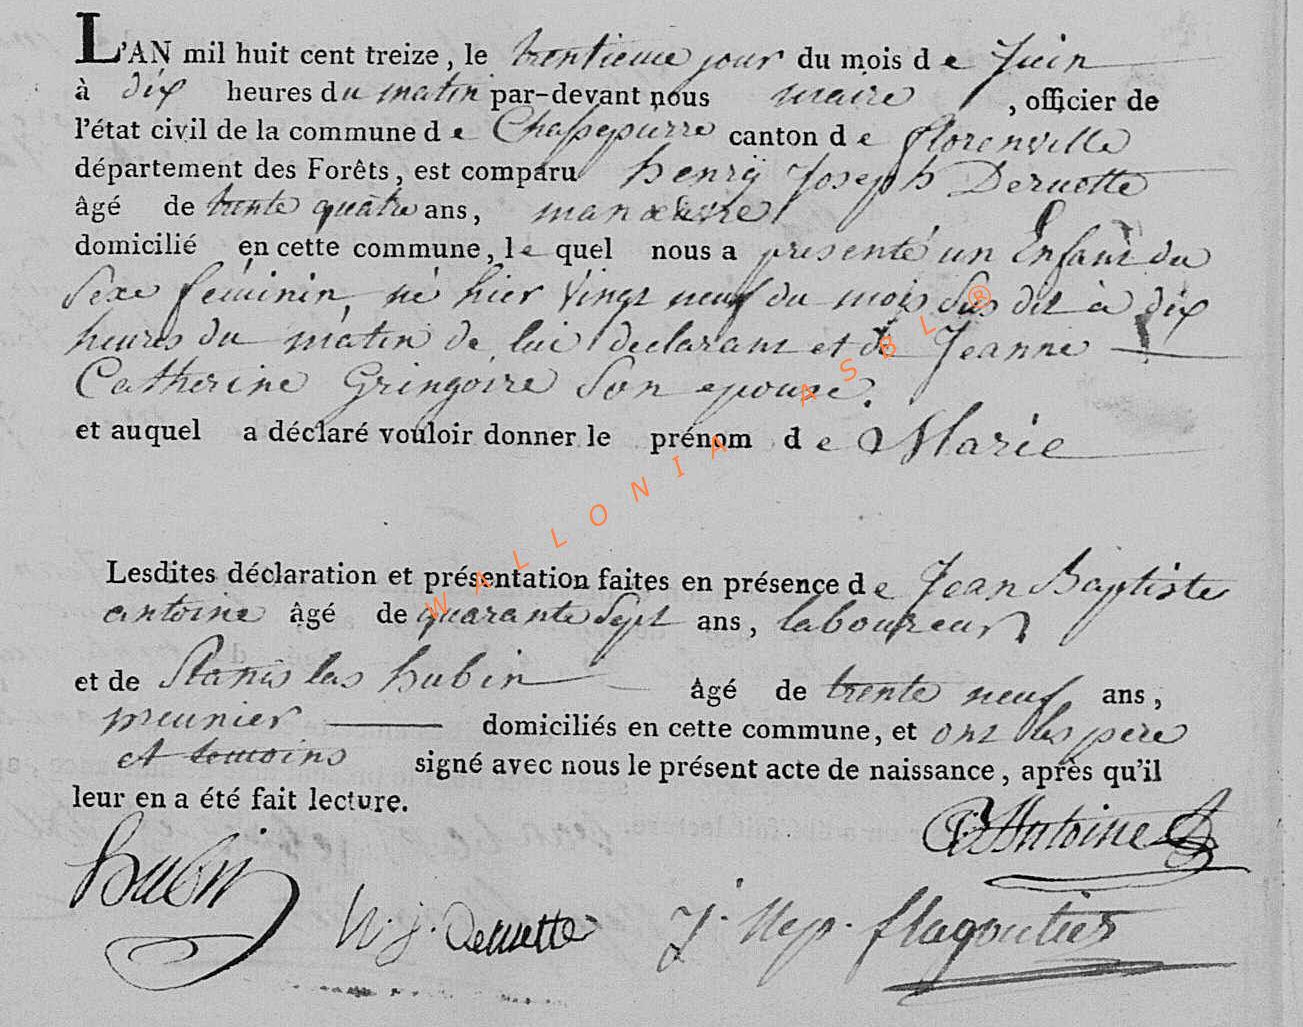 L'AN mil huit cent treize, le trentieme jour du mois de Juin
à dix heures du matin par-devant nous maire, officier de
l'état civil de la commune de Chassepierre canton de florenville
département des Forêts, est comparu henry Joseph Deruette
âgé de trente quatre ans, manœuvre
domicilié en cette commune, lequel nous a presenté un Enfant du
Sexe feminin né hier vingt neuf du mois Sus dit à dix
heures du matin de lui declarant et de Jeanne
Catherine Gringoire Son epouse.
et auquel a déclaré vouloir donner le prénom de Marie
Lesdites déclaration et présentation faites en présence de Jean Baptiste
antoine âgé de quarante Sept ans, laboureur
et de Stanislas hubin âgé de trente neuf ans,
meunier domiciliés en cette commune, et ont les père
et temoins signé avec nous le présent acte de naissance, après qu'il
leur en a été fait lecture.
Antoine
hubin
h. j. Deruette
J. Nep. flagoutier
WALLONIA ASBL ®